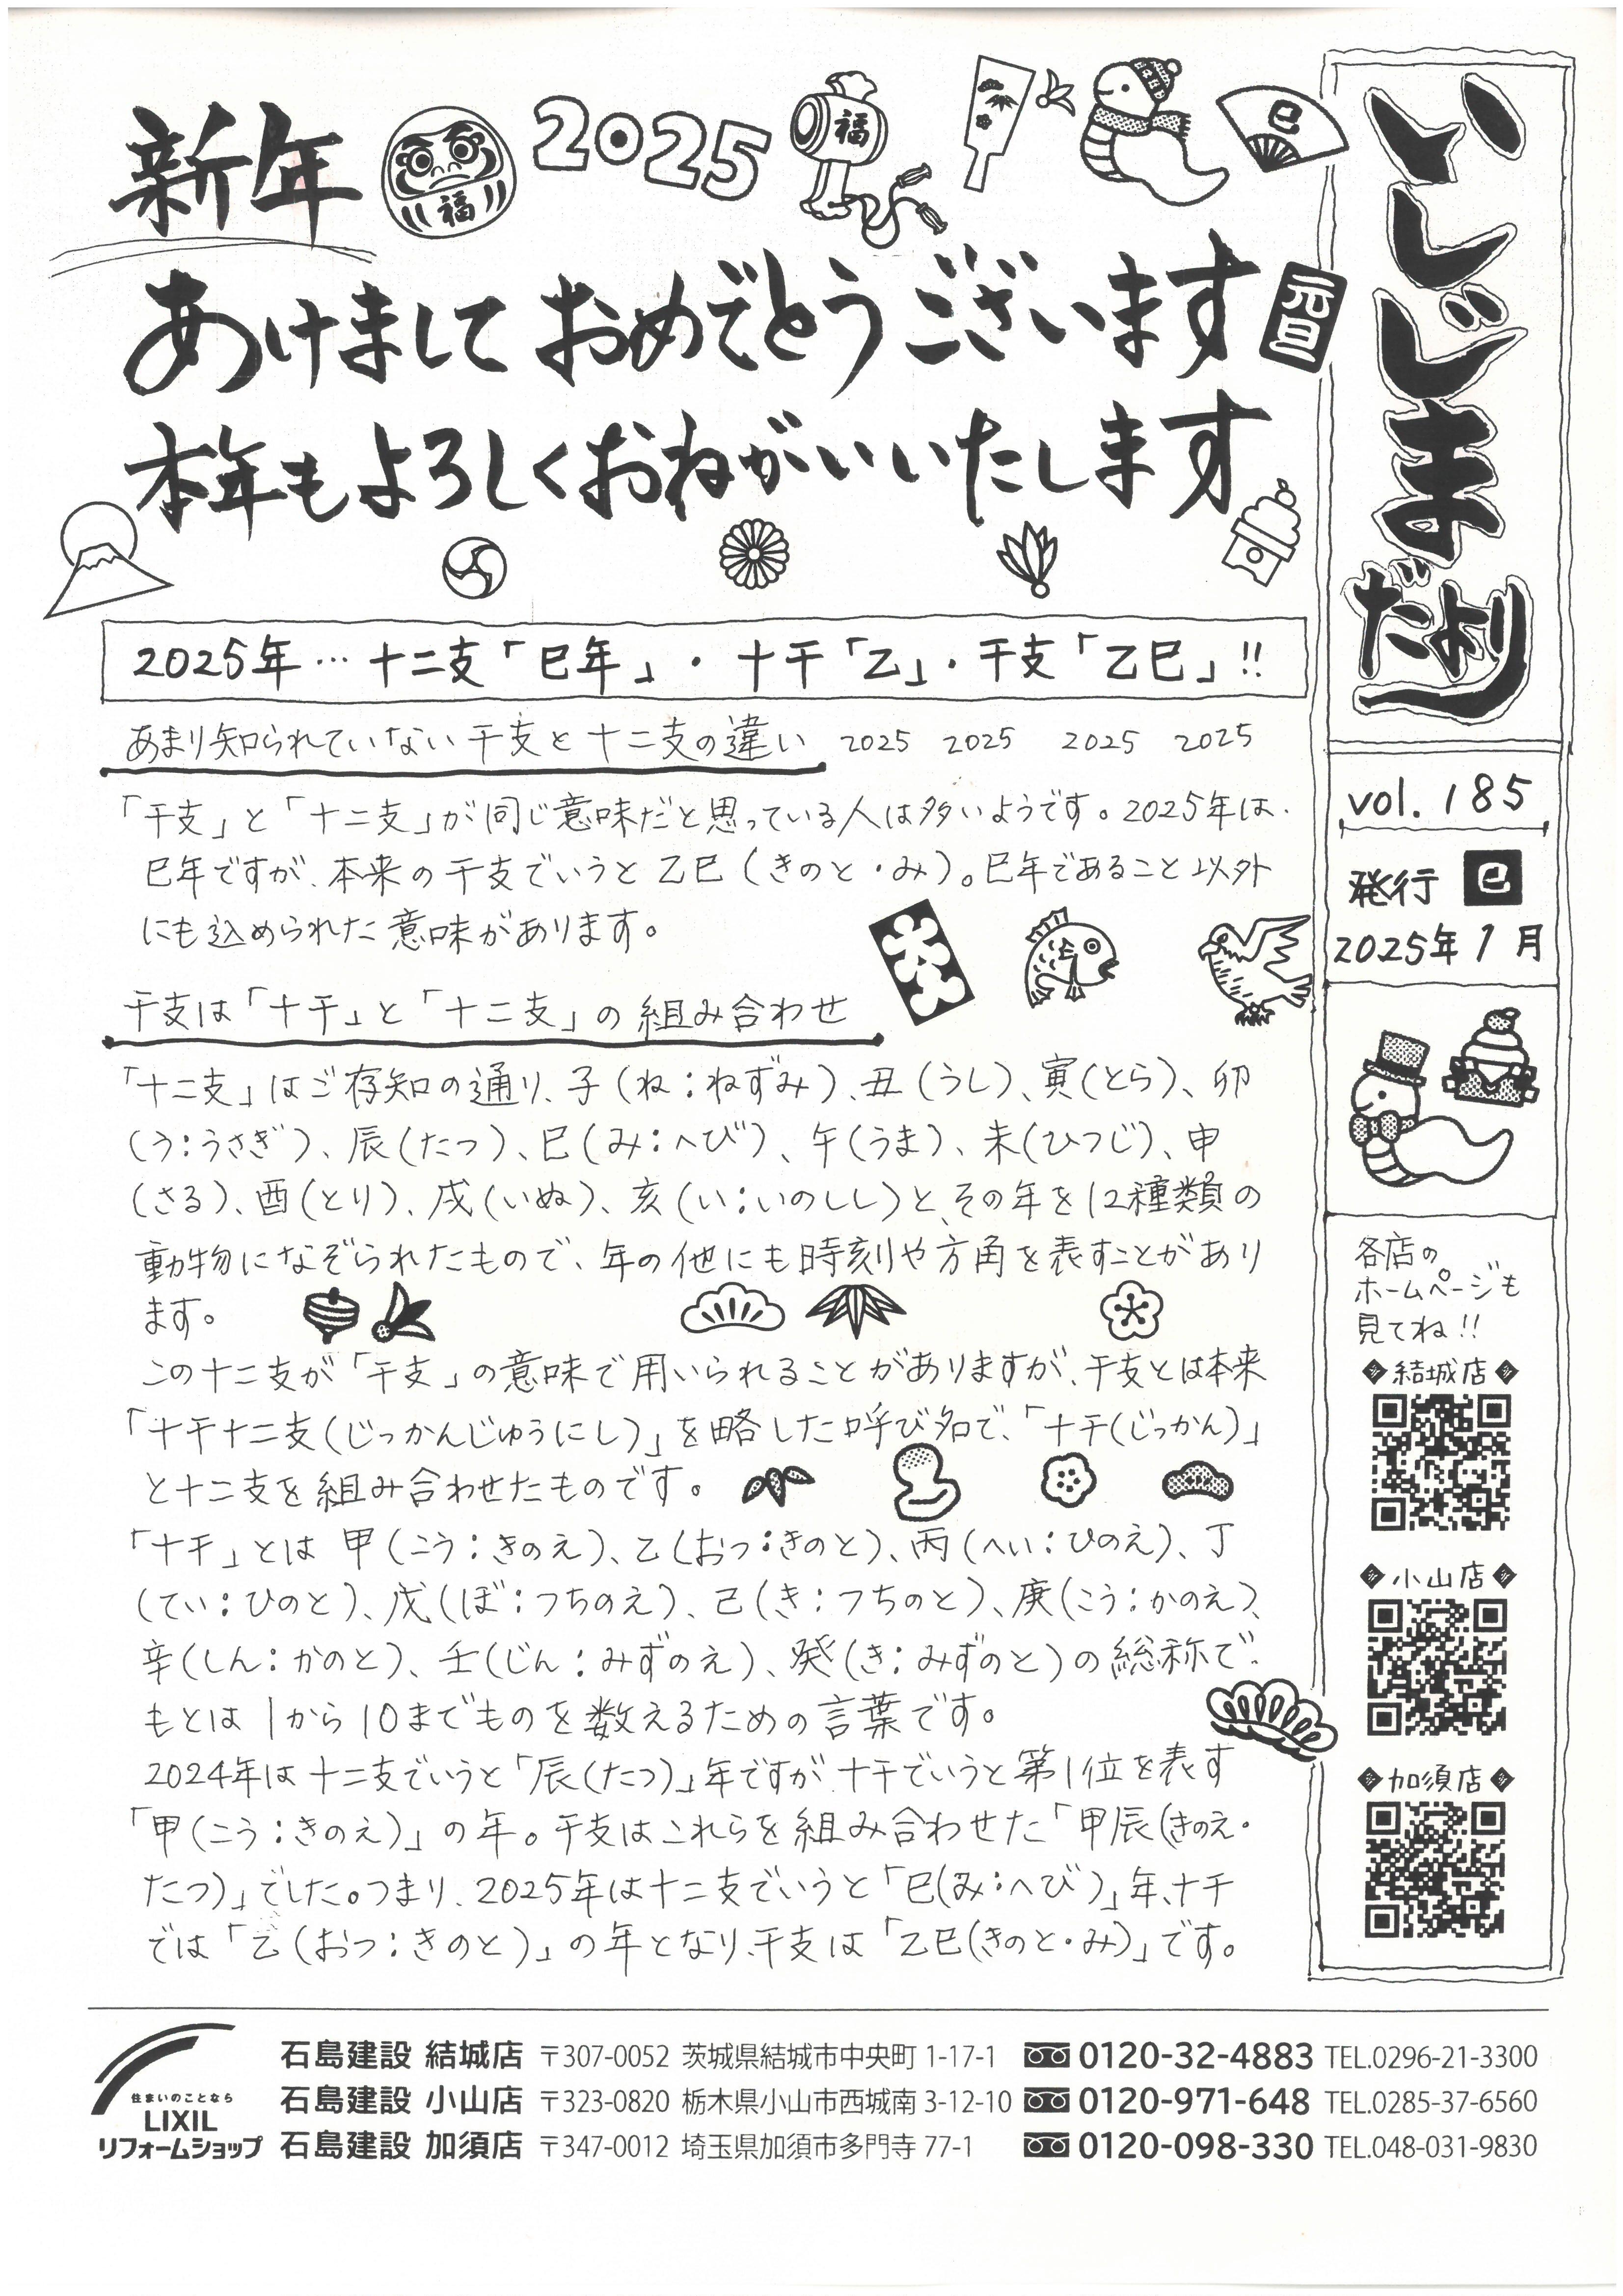 新年
福
2025
福
巳
あけまして おめでとうございます
元旦
本年もよろしくおねがいいたします
いしじまだより
vol.185
発行 巳
2025年1月
2025年…十二支「巳年」・十干「乙」・干支「乙巳」!!
あまり知られていない干支と十二支の違い 2025 2025 2025 2025
「干支」と「十二支」が同じ意味だと思っている人は多いようです。2025年は、
巳年ですが、本来の干支でいうと乙巳(きのと・み)。巳年であること以外
にも込められた意味があります。
干支は「十干」と「十二支」の組み合わせ
「十二支」はご存知の通り、子(ね:ねずみ)、丑(うし)、寅(とら)、卯
(う:うさぎ)、辰(たつ)、巳(み:へび)、午(うま)、未(ひつじ)、申
(さる)、酉(とり)、戌(いぬ)、亥(い:いのしし)と、その年を12種類の
動物になぞられたもので、年の他にも時刻や方角を表すことがあり
ます。
この十二支が「干支」の意味で用いられることがありますが、干支とは本来
「十干十二支(じっかんじゅうにし)」を略した呼び名で、「十干(じっかん)」
と十二支を組み合わせたものです。
「十干」とは 甲(こう:きのえ)、乙(おつ:きのと)、丙(へい:ひのえ)、丁
(てい:ひのと)、戊(ぼ:つちのえ)、己(き:つちのと)、庚(こう:かのえ)、
辛(しん:かのと)、壬(じん:みずのえ)、癸(き:みずのと)の総称で、
もとは1から10までものを数えるための言葉です。
2024年は十二支でいうと「辰(たつ)」年ですが、十干でいうと第1位を表す
「甲(こう:きのえ)」の年。干支はこれらを組み合わせた「甲辰(きのえ・
たつ)」でした。つまり、2025年は十二支でいうと「巳(み:へび)」年、十干
では「乙(おつ:きのと)」の年となり、干支は「乙巳(きのと・み)」です。
各店の
ホームページも
見てね!!
◆結城店◆
◆小山店◆
◆加須店◆
住まいのことなら
LIXIL
リフォームショップ
石島建設 結城店 〒307-0052 茨城県結城市中央町 1-17-1 0120-32-4883 TEL.0296-21-3300
石島建設 小山店 〒323-0820 栃木県小山市西城南 3-12-10 0120-971-648 TEL.0285-37-6560
石島建設 加須店 〒347-0012 埼玉県加須市多門寺 77-1 0120-098-330 TEL.048-031-9830